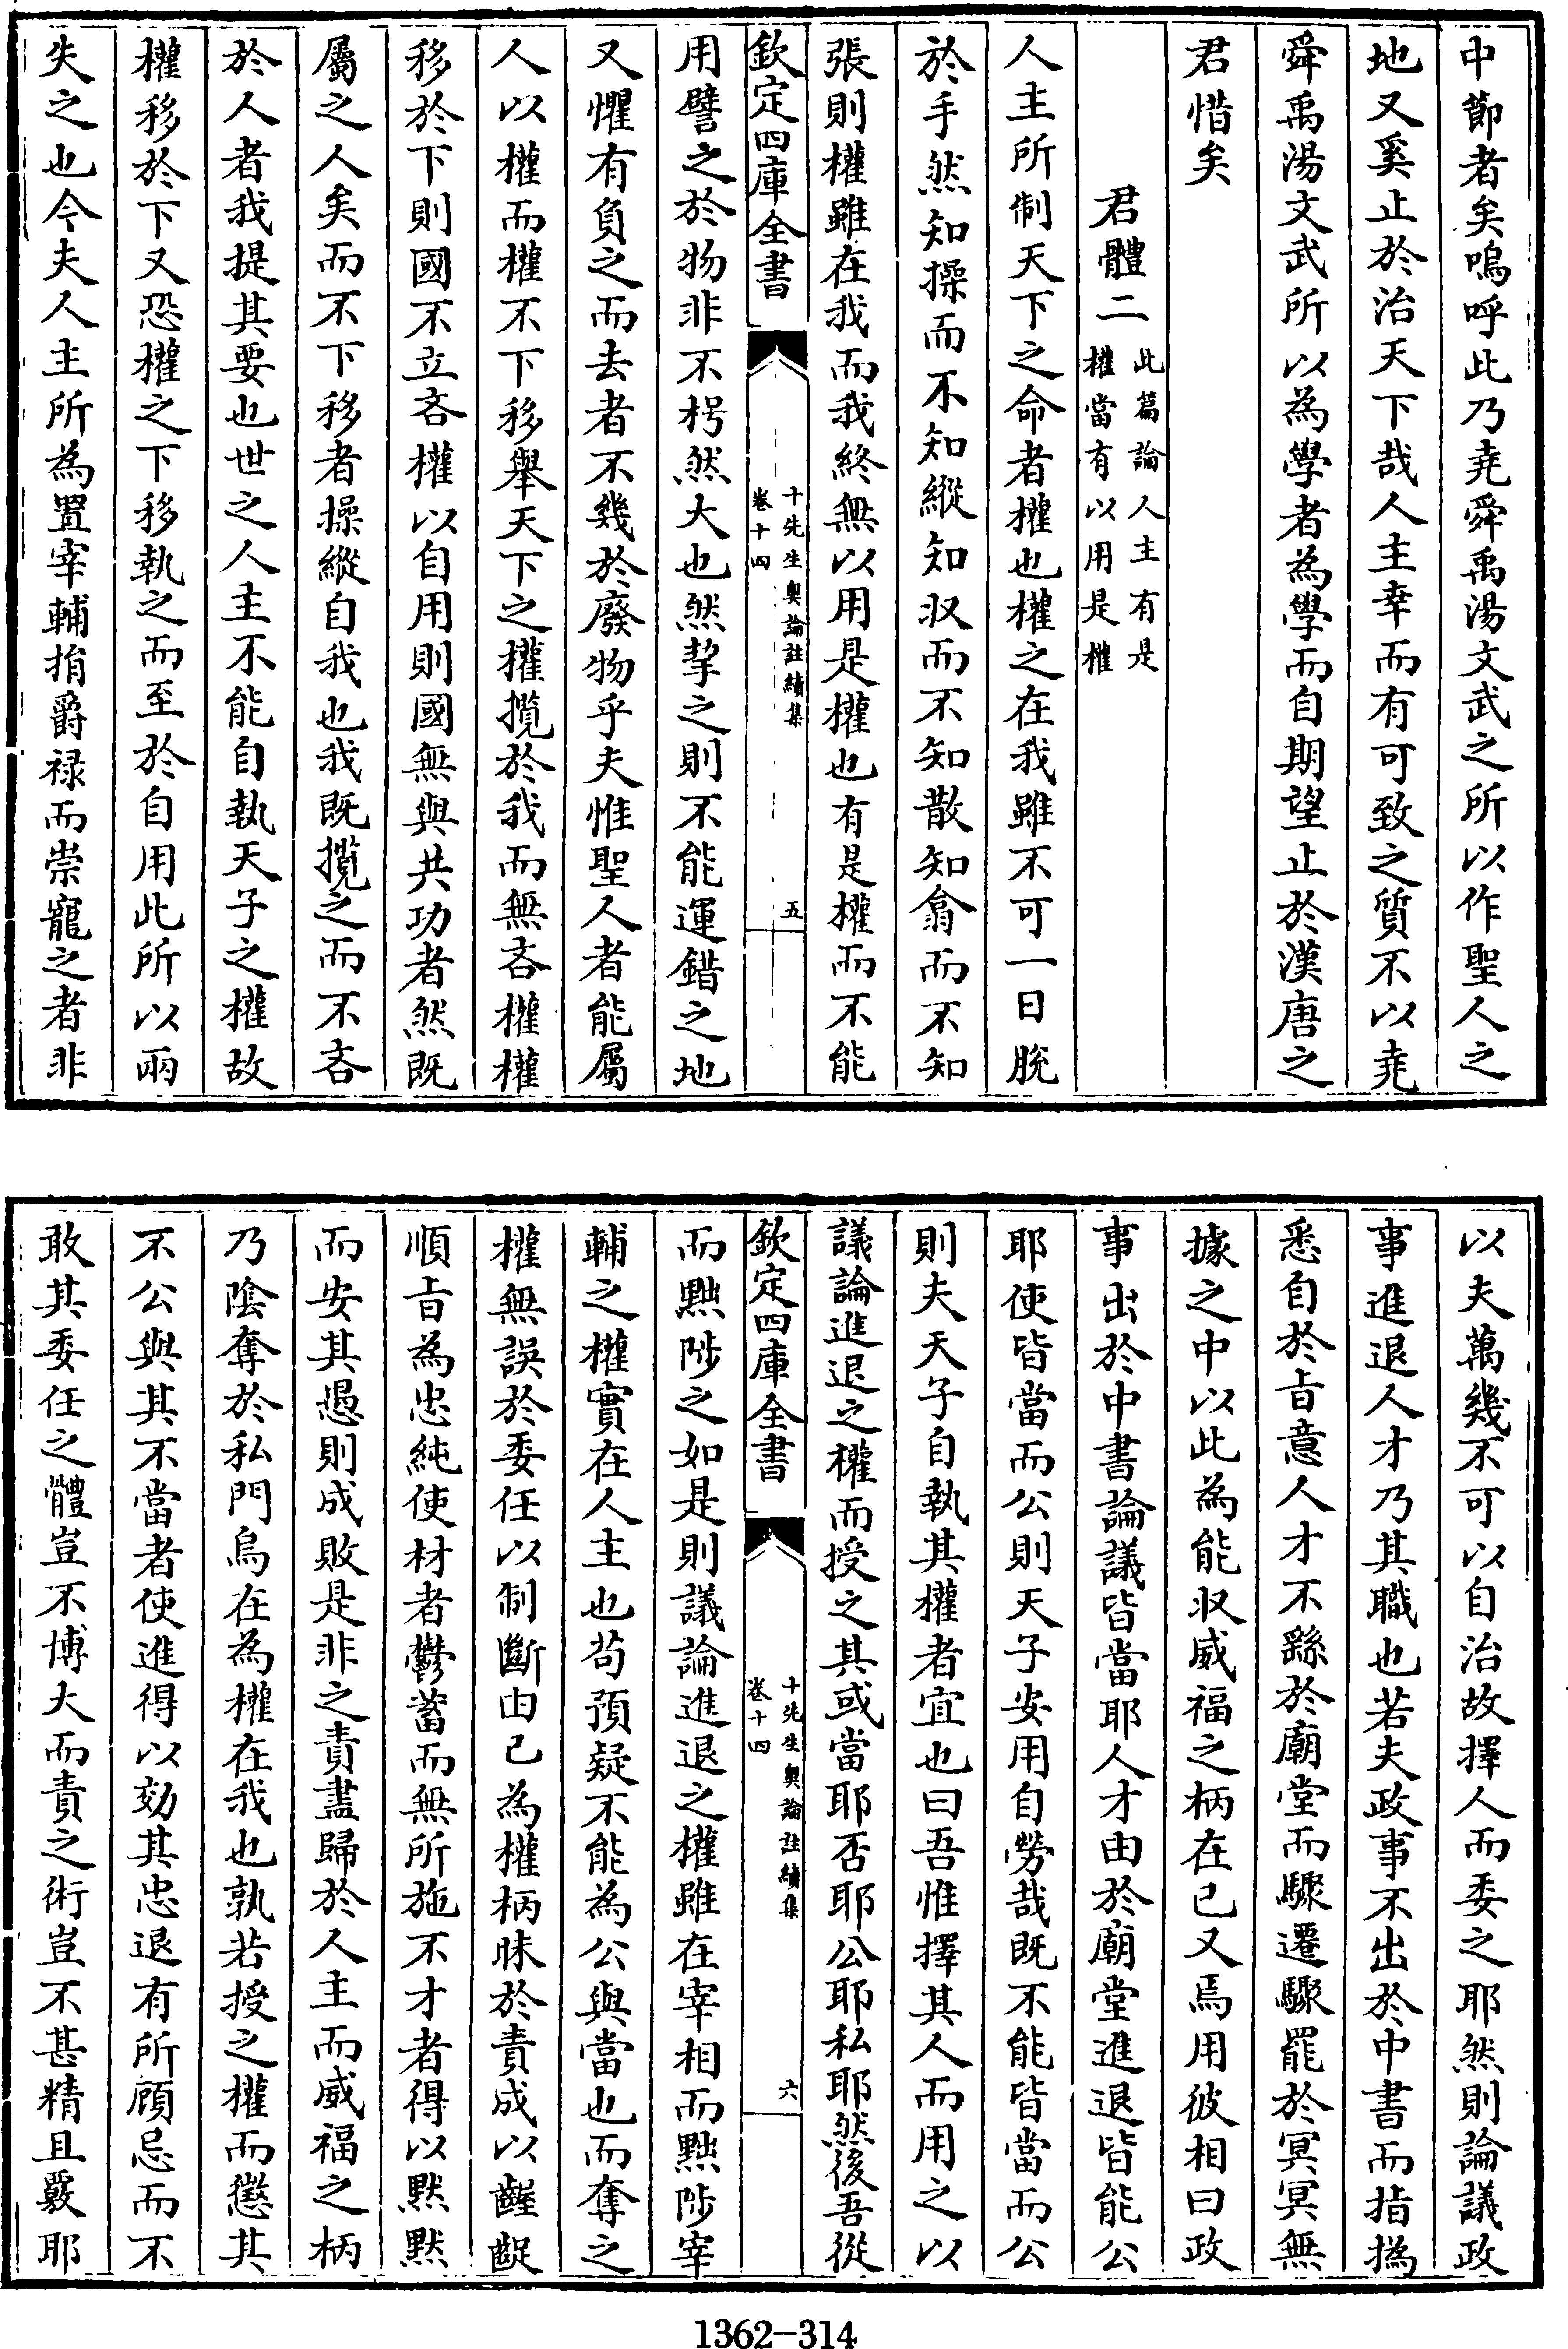 中節者矣嗚呼此乃堯舜禹湯文武之所以作聖人之
地又奚止於治天下哉人主幸而有可致之質不以堯
舜禹湯文武所以為學者為學而自期望止於漢唐之
君惜矣
君體二
此篇論人主有是
權當有以用是權
人主所制天下之命者權也權之在我雖不可一日脫
於手然知操而不知縱知収而不知散知翕而不知
張則權雖在我而我終無以用是權也有是權而不能
欽定四庫全書
十先生奧論註續集
卷十四
五
用譬之於物非不枵然大也然挈之則不能運錯之地
又懼有負之而去者不幾於廢物乎夫惟聖人者能屬
人以權而權不下移舉天下之權攬於我而無吝權權
移於下則國不立吝權以自用則國無與共功者然既
屬之人矣而不下移者操縱自我也我既攬之而不吝
於人者我提其要也世之人主不能自執天子之權故
權移於下又恐權之下移執之而至於自用此所以兩
失之也今夫人主所為置宰輔捐爵祿而崇寵之者非
以夫萬幾不可以自治故擇人而委之耶然則論議政
事進退人才乃其職也若夫政事不出於中書而指撝
悉自於㫖意人才不繇於廟堂而驟遷驟罷於冥冥無
據之中以此為能収威福之柄在已又焉用彼相曰政
事出於中書論議皆當耶人才由於廟堂進退皆能公
耶使皆當而公則天子安用自勞哉既不能皆當而公
則夫天子自執其權者宜也曰吾惟擇其人而用之以
議論進退之權而授之其或當耶否耶公耶私耶然後吾從
欽定四庫全書
十先生奧論註續集
卷十四
六
而黜陟之如是則議論進退之權雖在宰相而黜陟宰
輔之權實在人主也苟預疑不能為公與當也而奪之
權無誤於委任以制斷由已為權柄昧於責成以齷齪
順㫖為忠純使材者鬱蓄而無所施不才者得以默默
而安其愚則成敗是非之責盡歸於人主而威福之柄
乃陰奪於私門烏在為權在我也孰若授之權而懲其
不公與其不當者使進得以効其忠退有所顧忌而不
敢其委任之體豈不博大而責之術豈不甚精且覈耶
1362-314